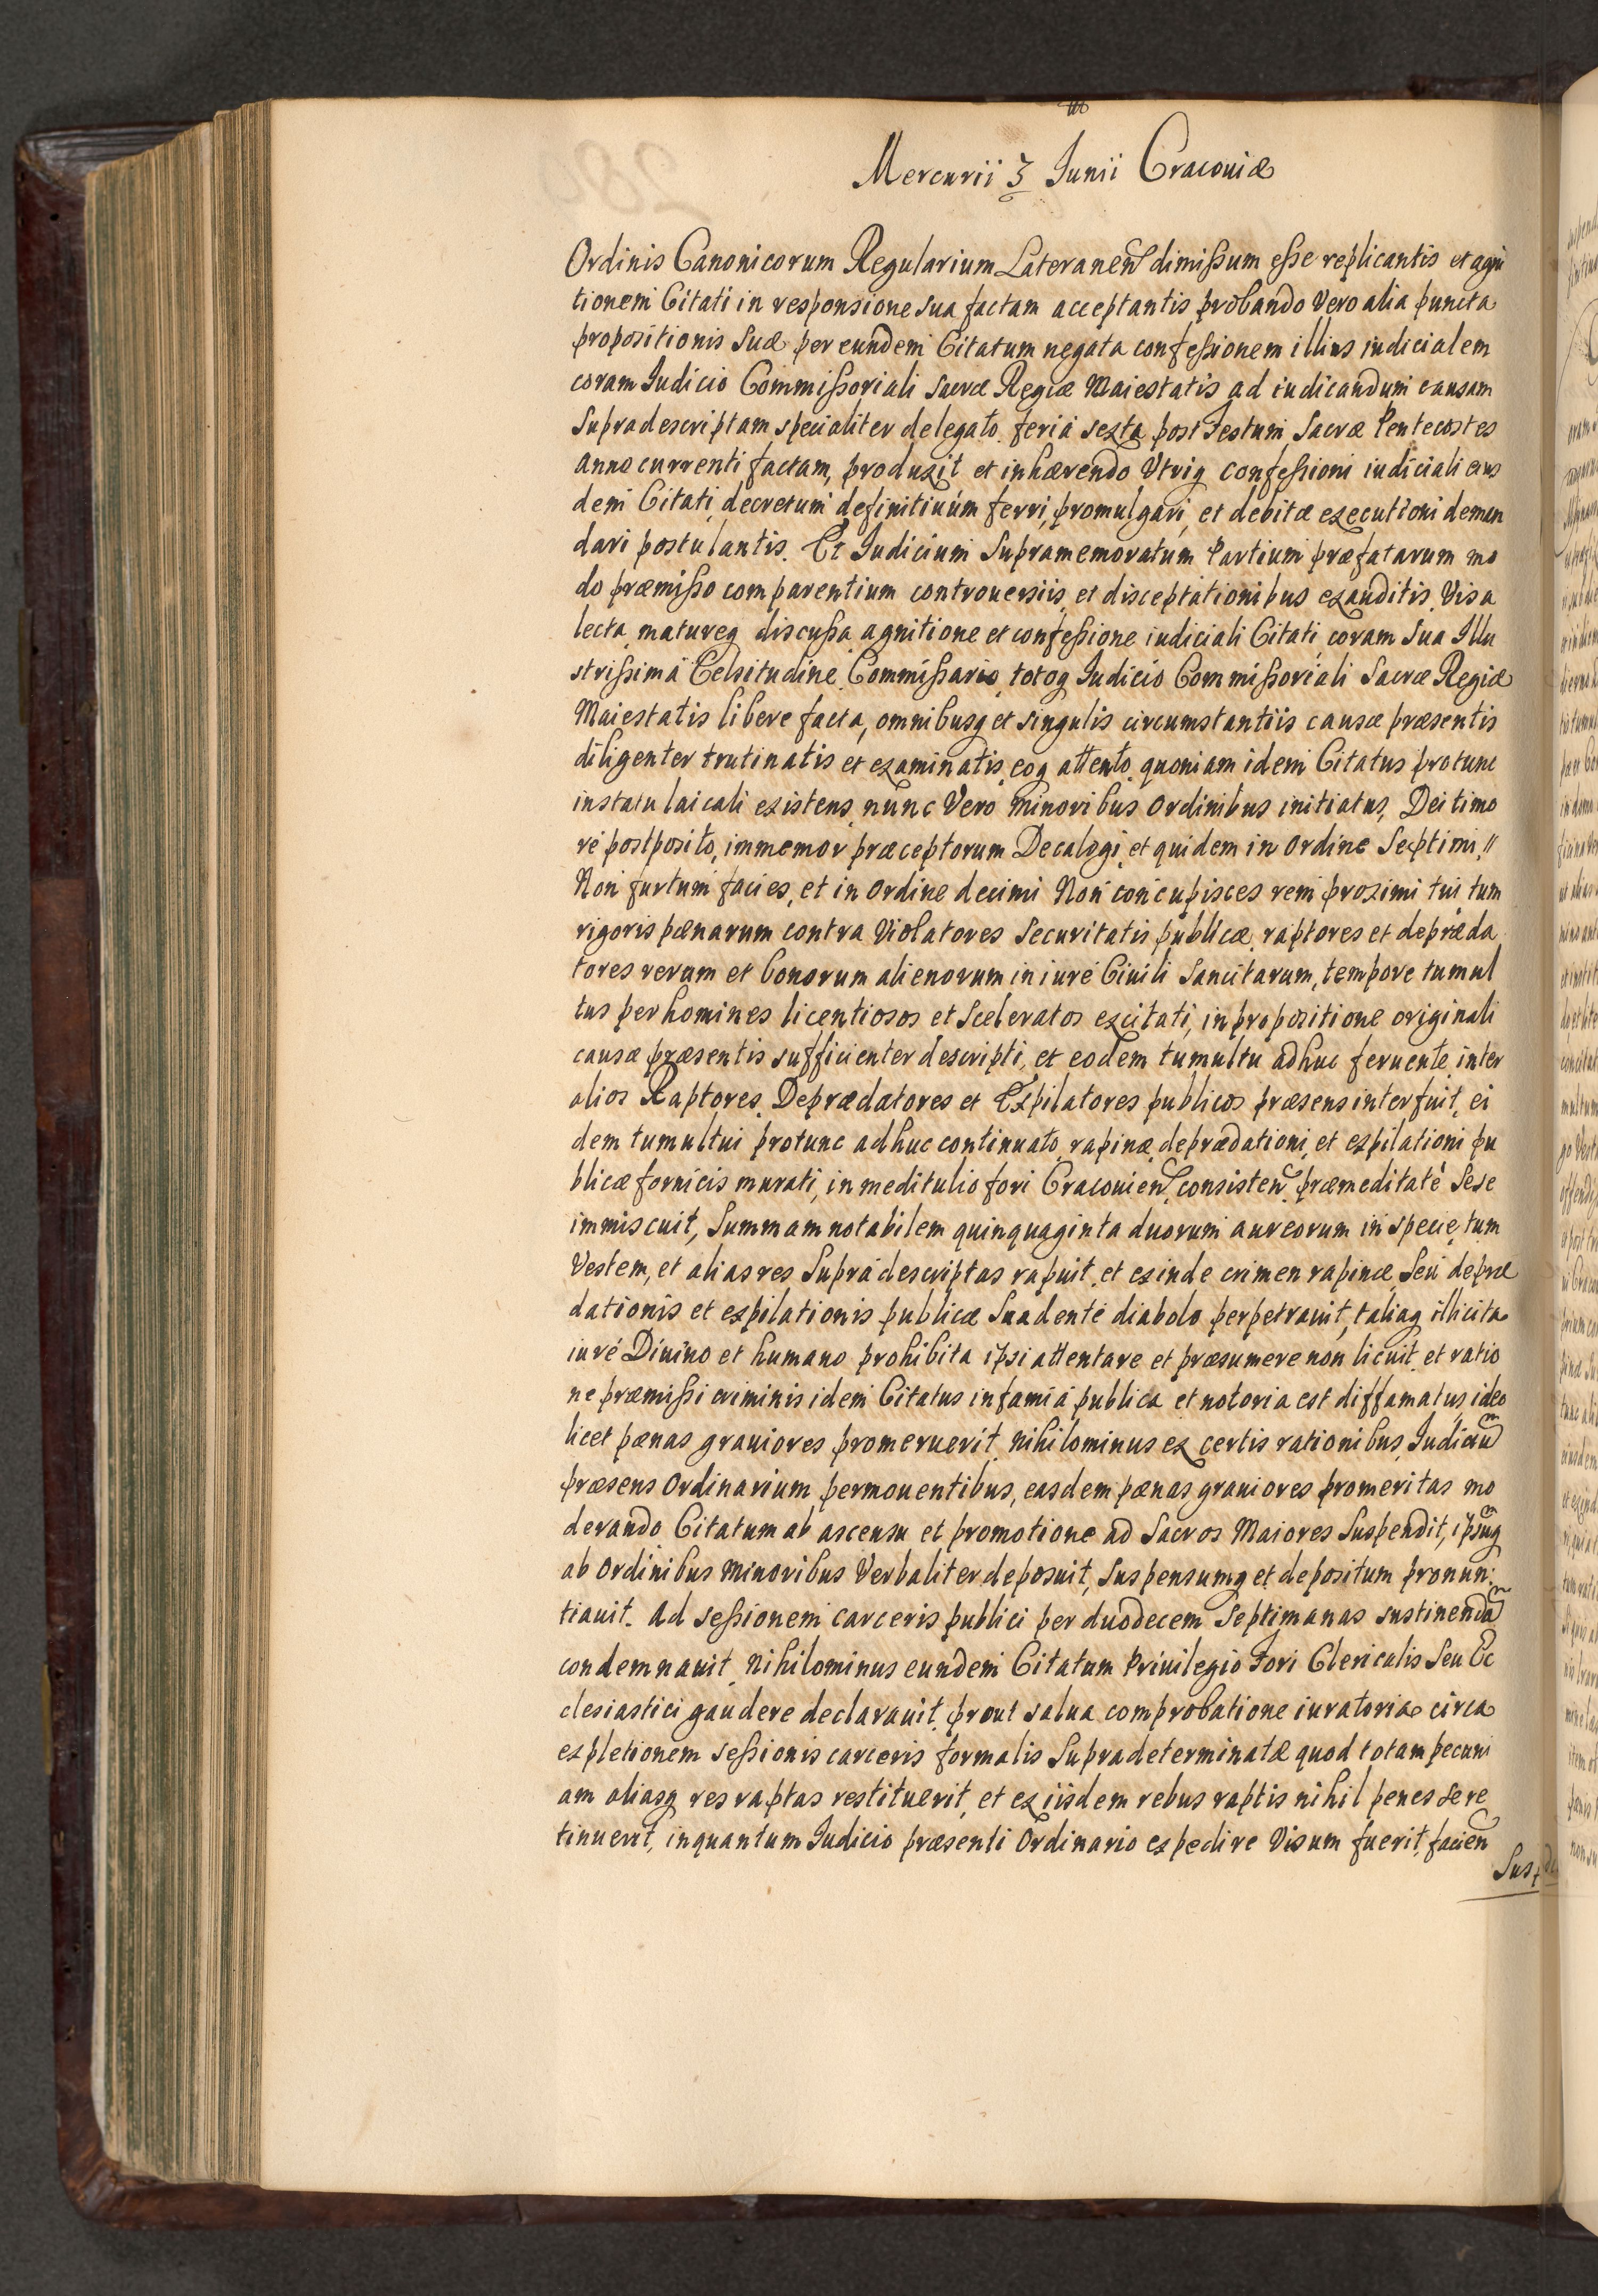 Mercurii 3 Junii Cracouiæ
Ordinis Canonicorum Regularium Lateranen dimissum esse replicantis et agni
tionem Citati in responsione sua factam acceptantis probando Vero alia puncta
propositionis Suæ per eundem Citatum negata confessionem illius iudicialem
coram Iudicio Commissoriali Sacræ Regiæ Maiestatis ad iudicandum causam
Supradescriptam specialiter delegato feria sexta post Festum Sacræ Pentecostes
anno currenti factam, produxit et inhærendo Utriq confessioni iudiciali eius
dem Citati, decretum definitiuum ferri, promulgari, et debitæ executioni deman
dari postulantis. Et Iudicium Supramemoratum Partium præfatarum mo
do præmisso comparentium controuersiis, et disceptationibus exauditis, Visa
lecta, matureq discussa agnitione et confessione iudiciali Citati, coram Sua Illu
strissima Celsitudine Commissario, totoq Iudicio Commissoriali Sacræ Regiæ
Maiestatis libere facta, omnibusq et singulis circumstantiis causæ præsentis
diligenter trutinatis et examinatis, eoq attento, quoniam idem Citatus protunc
in statu laicali existens, nunc Vero minoribus Ordinibus initiatus, Dei timo
re postposito, immemor præceptorum Decalogi, et quidem in Ordine Septimi, //
Non furtum facies, et in Ordine decimi Non concupisces rem proximi tui tum
rigoris pænarum contra Violatores Securitatis publicæ, raptores et depræda
tores rerum et bonorum alienorum in iure Ciuili Sancitarum, tempore tumul
tus per homines licentiosos et Sceleratos excitati, in propositione originali
causæ præsentis sufficienter descripti, et eodem tumultu adhuc feruente, inter
alios Raptores, Deprædatores et Expilatores publicos præsens interfuit, ei
dem tumultui protunc adhuc continuato, rapinæ, deprædationi, et expilationi pu
blicæ fornicis murati, in meditulio fori Cracouien, consisten, præmeditate Sese
immiscuit, Summam notabilem quinquaginta duorum aureorum in specie, tum
Vestem, et alias res Supra descriptas rapuit, et exinde crimen rapinæ Seu depræ
dationis et expilationis publicæ Suadente diabolo perpetrauit, taliaq illicita
iure Diuino et humano prohibita ipsi attentare et præsumere non licuit, et ratio
ne præmissi criminis idem Citatus infamia publica et notoria est diffamatus, ideo
licet pænas grauiores promeruerit, nihilominus ex certis rationibus, Iudicium
præsens Ordinarium permouentibus, easdem pænas grauiores promeritas mo
derando Citatum ab ascensu et promotione ad Sacros Maiores Suspendit, ipsumq
ab Ordinibus Minoribus Verbaliter deposuit, Suspensumq et depositum pronun
tiauit. Ad sessionem carceris publici per duodecem Septimanas sustinendam
condemnauit, nihilominus eundem Citatum Priuilegio Fori Clericalis Seu Ec
clesiastici gaudere declarauit, prout salua comprobatione iuratoria circa
expletionem sessionis carceris formalis Supradeterminatæ quod totam pecuni
am aliasq res raptas restituerit, et ex iisdem rebus raptis nihil penes se re
tinuerit, inquantum Iudicio præsenti Ordinario expedire Visum fuerit, facien